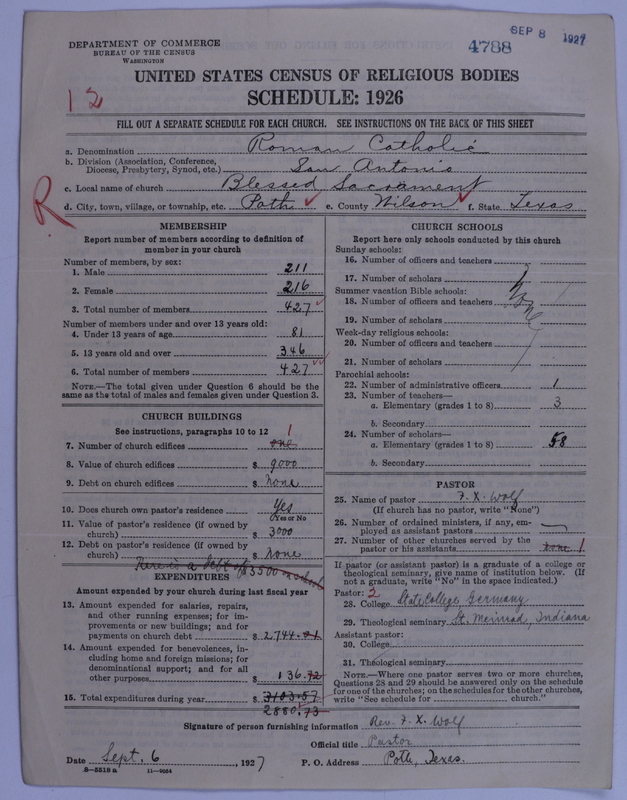 SEP 8 1927
4788
DEPARTMENT OF COMMERCE
BUREAU OF THE CENSUS
WASHINGTON
UNITED STATES CENSUS OF RELIGIOUS BODIES
SCHEDULE: 1926
12
FILL OUT A SEPARATE SCHEDULE FOR EACH CHURCH. SEE INSTRUCTIONS ON THE BACK OF THIS SHEET
a. Denomination Roman Catholic
b. Division (Association, Conference, Diocese, Presbytery, Synod, etc.) San Antonio
c. Local name of church Blessed Sacrament
R
d. City, town, village, or township, etc. Poth e. County Wilson f. State Texas
MEMBERSHIP
Report number of members according to definition of
member in your church
Number of members, by sex:
1. Male 211
2. Female 216
3. Total number of members 427
Number of members under and over 13 years old:
4. Under 13 years of age 81
5. 13 years old and over 346
6. Total number of members 427
NOTE.—The total given under Question 6 should be the
same as the total of males and females given under Question 3.
CHURCH BUILDINGS
See instructions, paragraphs 10 to 12
7. Number of church edifices one 1
8. Value of church edifices $ 9000
9. Debt on church edifices $ None
10. Does church own pastor's residence Yes
(Yes or No)
11. Value of pastor's residence (if owned by
church) $ 3000
12. Debt on pastor's residence (if owned by
church) $ None
there is a debt of $3500 on school
EXPENDITURES
Amount expended by your church during last fiscal year
13. Amount expended for salaries, repairs,
and other running expenses; for im-
provements or new buildings; and for
payments on church debt $ 2,744.01
14. Amount expended for benevolences, in-
cluding home and foreign missions; for
denominational support; and for all
other purposes $ 136.72
15. Total expenditures during year $ 3103.57
2880.73
CHURCH SCHOOLS
Report here only schools conducted by this church
Sunday schools:
16. Number of officers and teachers
17. Number of scholars
Summer vacation Bible schools:
18. Number of officers and teachers
None
19. Number of scholars
Week-day religious schools:
20. Number of officers and teachers
21. Number of scholars
Parochial schools:
22. Number of administrative officers 1
23. Number of teachers—
a. Elementary (grades 1 to 8) 3
b. Secondary
24. Number of scholars—
a. Elementary (grades 1 to 8) 58
b. Secondary
PASTOR
25. Name of pastor F. X. Wolf
(If church has no pastor, write "None")
26. Number of ordained ministers, if any, em-
ployed as assistant pastors
27. Number of other churches served by the
pastor or his assistants none 1
If pastor (or assistant pastor) is a graduate of a college or
theological seminary, give name of institution below. (If
not a graduate, write "No" in the space indicated.)
Pastor: 2
28. College State College Germany
29. Theological seminary St. Meinrad, Indiana
Assistant pastor:
30. College
31. Theological seminary
NOTE.—Where one pastor serves two or more churches,
Questions 28 and 29 should be answered only on the schedule
for one of the churches; on the schedules for the other churches,
write "See schedule for church."
Signature of person furnishing information Rev. F. X. Wolf
Official title Pastor
Date Sept. 6, 1927 P. O. Address Poth, Texas.
8—5518a 11—9364